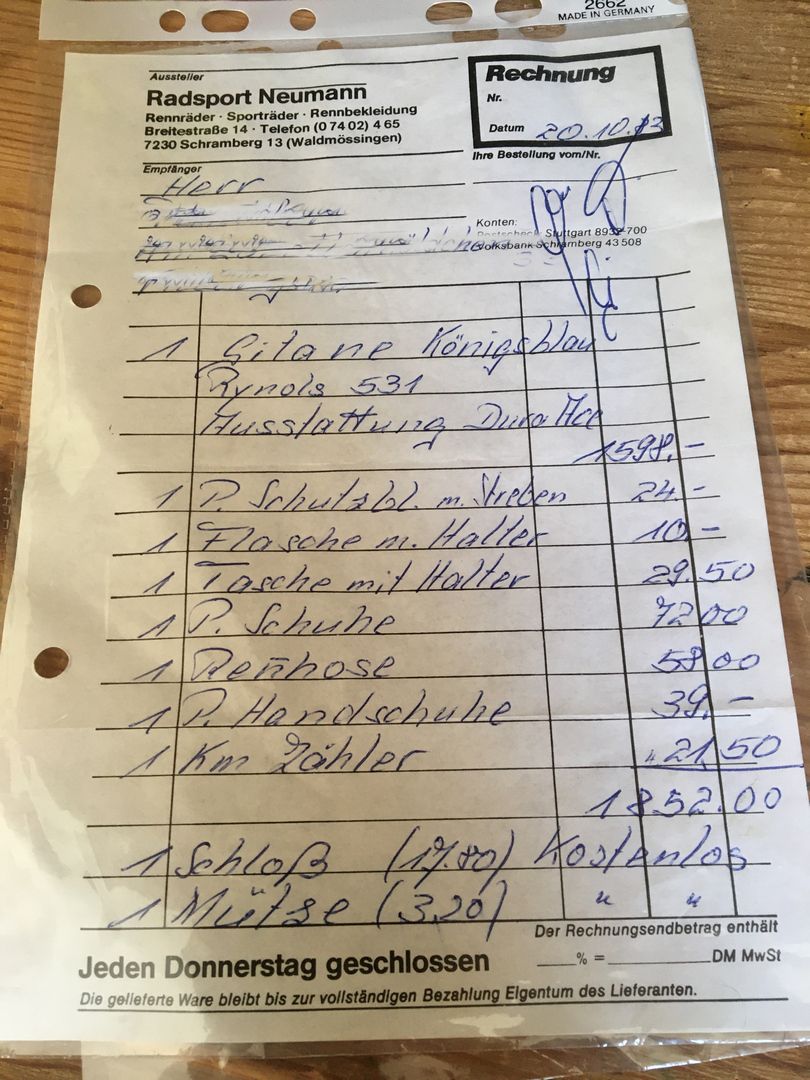 2662
MADE IN GERMANY
Aussteller
Radsport Neumann
Rennräder · Sporträder · Rennbekleidung
Breitestraße 14 · Telefon (0 74 02) 4 65
7230 Schramberg 13 (Waldmössingen)
Rechnung
Nr.
Datum 20.10.83
Ihre Bestellung vom/Nr.
Empfänger
Herr
Konten:
Postscheck Stuttgart 8932-700
Volksbank Schramberg 43 508
1 Gitane Königsblau
Rynols 531
Ausstattung Dura Ace
1598.-
1 P. Schutzbl. m. Streben 24.-
1 Flasche m. Halter 10.-
1 Tasche mit Halter 29.50
1 P. Schuhe 72 00
1 Reñhose 58 00
1 P. Handschuhe 39.-
1 Km Zähler 21.50
1852.00
1 Schloß (17.80) Kostenlos
1 Mütze (3,20) " "
Der Rechnungsendbetrag enthält
% = DM MwSt
Jeden Donnerstag geschlossen
Die gelieferte Ware bleibt bis zur vollständigen Bezahlung Eigentum des Lieferanten.